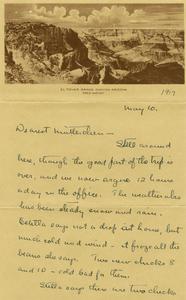 EL TOVAR, GRAND CANYON, ARIZONA
FRED HARVEY
1917
May 10.
Dearest Mütterchen —
Still around
here, though the great part of the trip is
over, and we now argue 12 hours
a day in the office. The weather also
has been steady snow and rain.
Estella says not a drop out home, but
much cold and wind - it froze all the
beans she says. Two new chicks 8
and 10 - cold bad for them.
Stella says there are two chicks